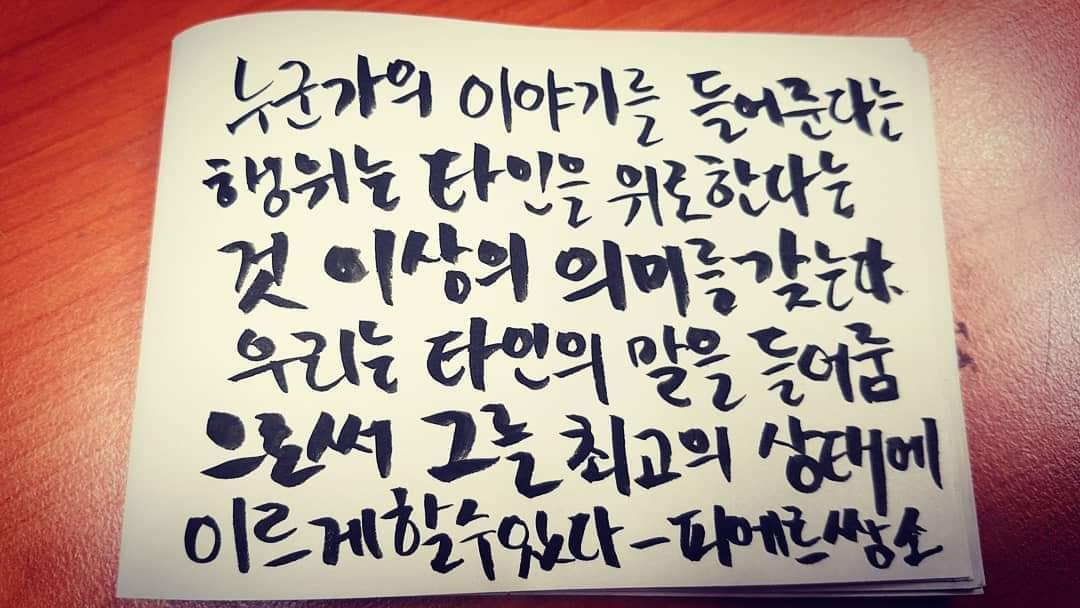 누군가의 이야기를 들어준다는
행위는 타인을 위로한다는
것 이상의 의미를 갖는다.
우리는 타인의 말을 들어줌
으로써 그를 최고의 상태에
이르게할수있다-피에르쌍소